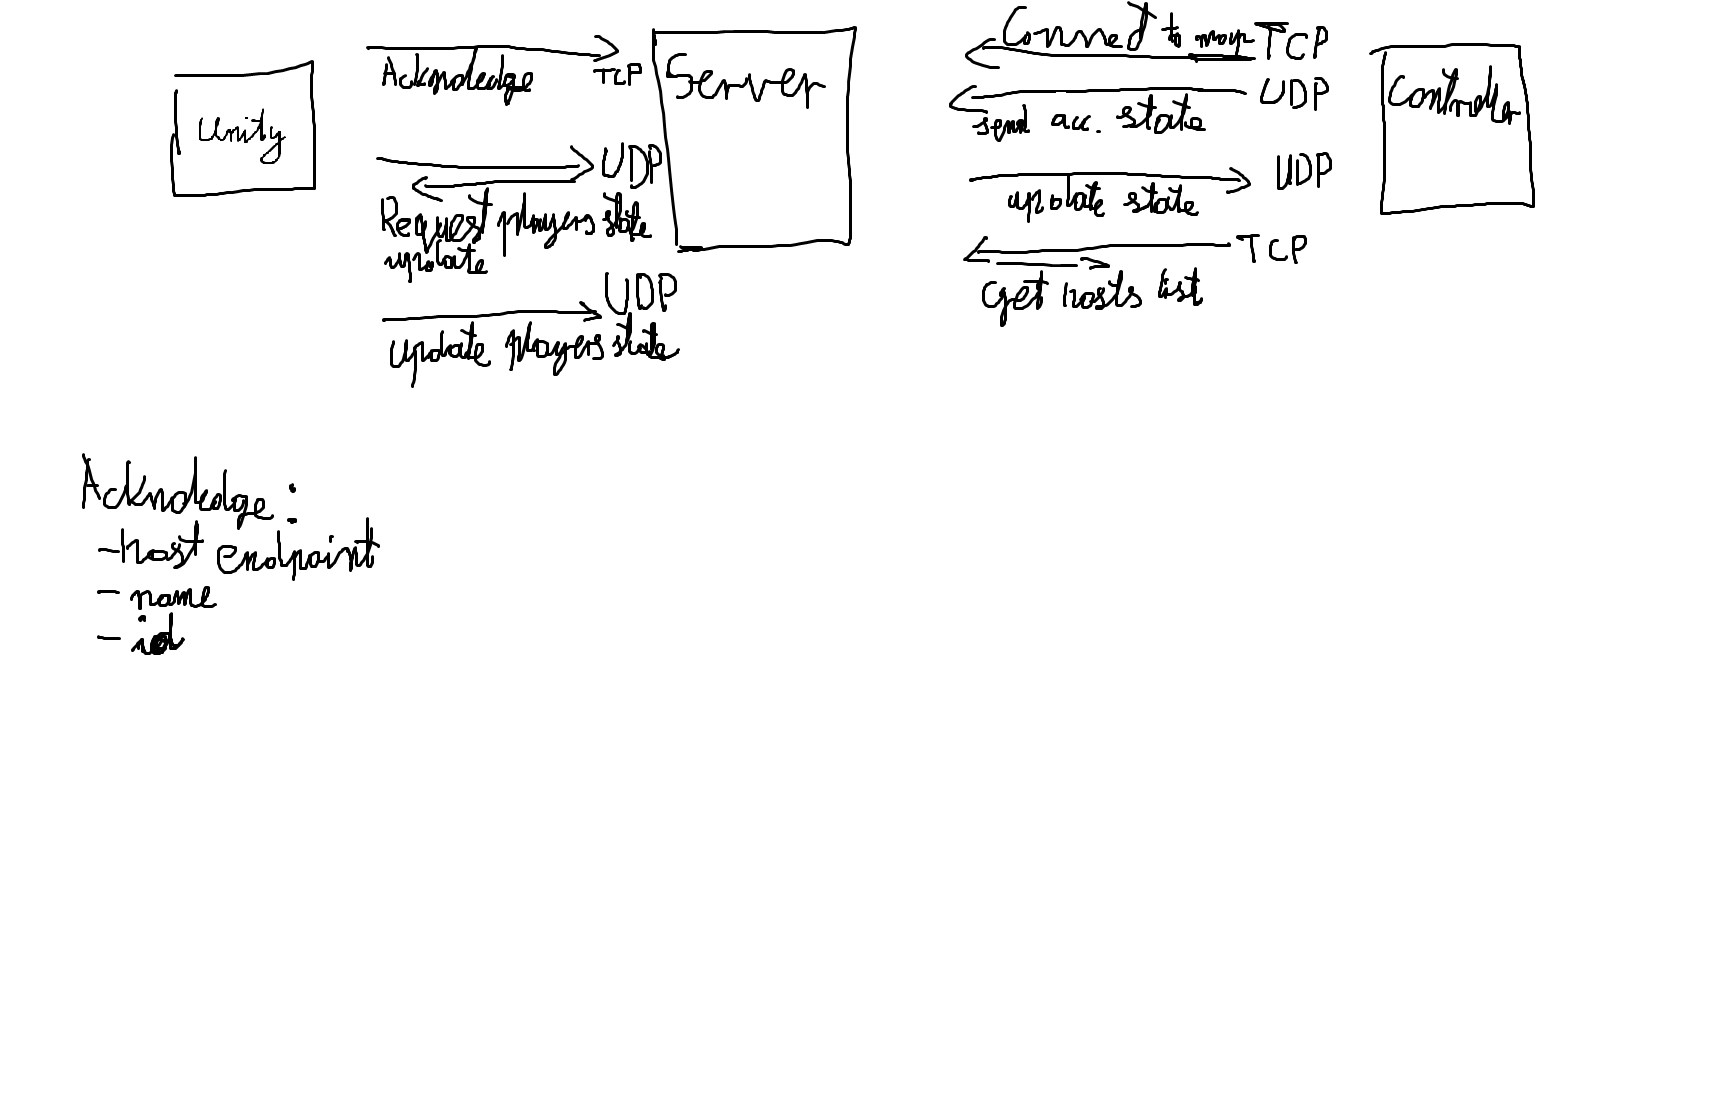 Unity
Acknoledge TCP
UDP
Request players state
update
UDP
update players state
Server
Connect to map TCP
UDP
send acc. state
UDP
update state
TCP
Get hosts list
Controller
Acknoledge:
- host endpoint
- name
- id